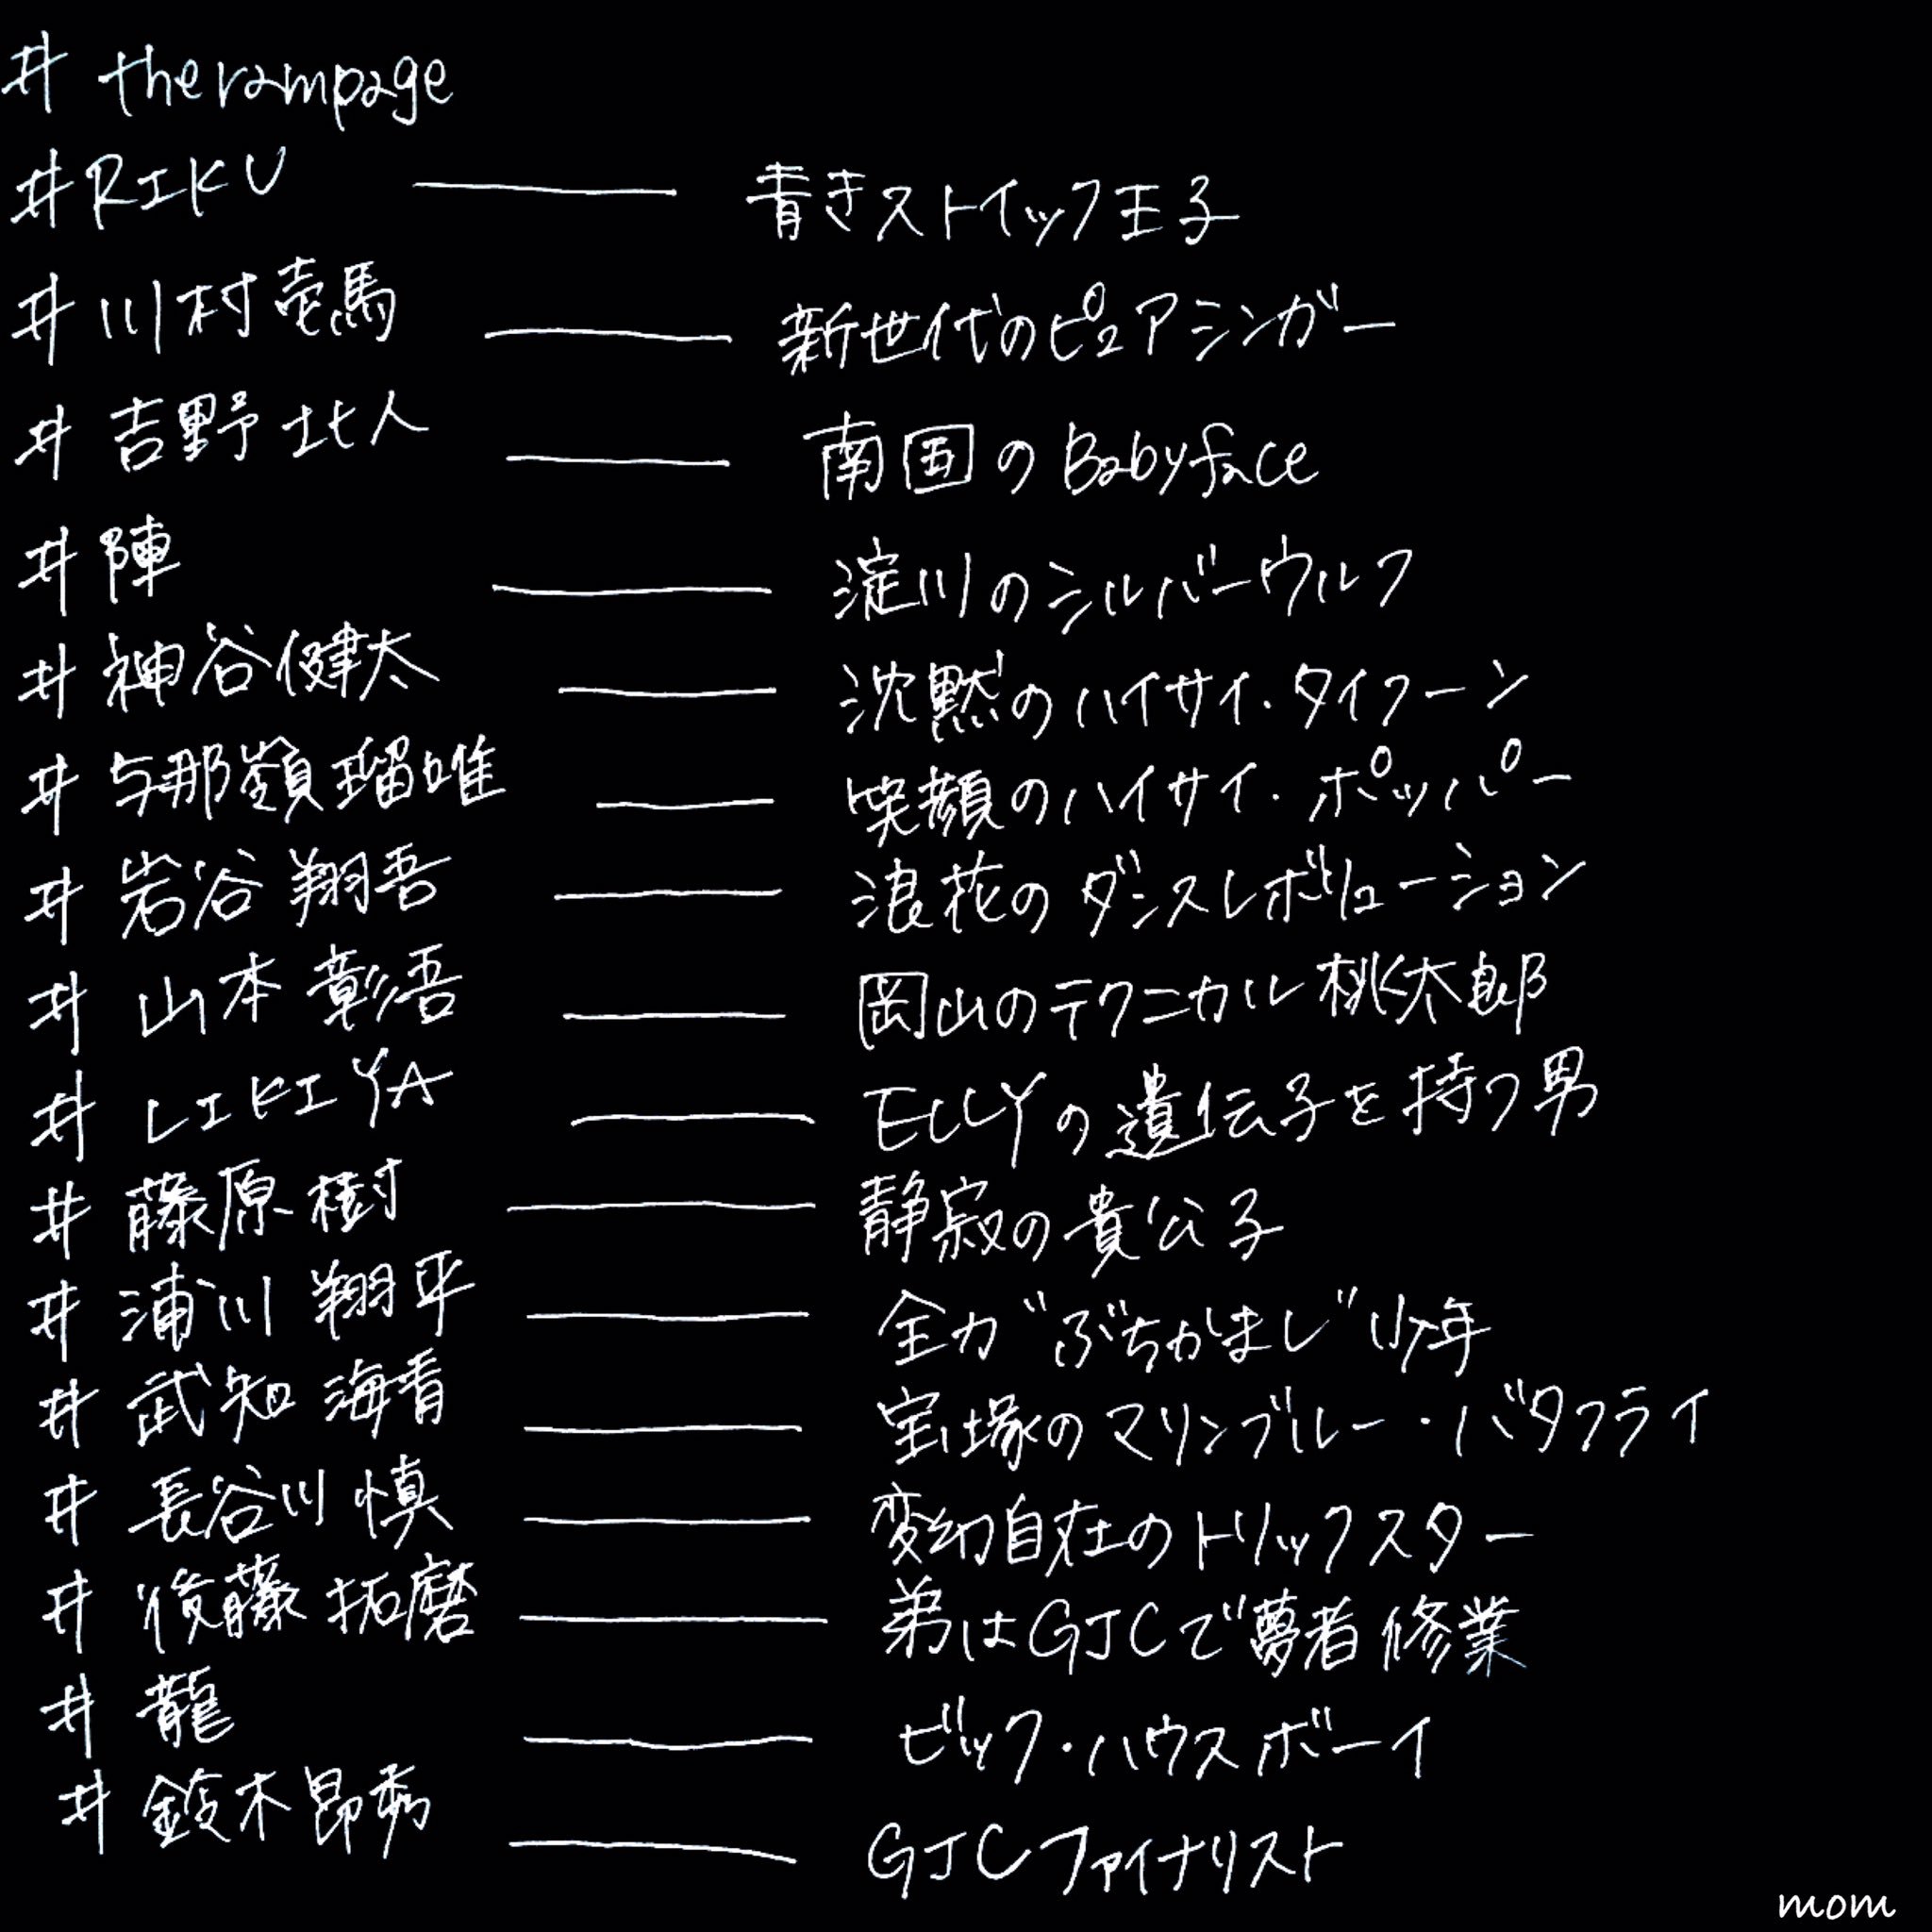 # therampage
# RIKU ——— 青きストイック王子
# 川村壱馬 ——— 新世代のピュアシンガー
# 吉野北人 ——— 南国のBabyface
# 陣 ——— 淀川のシルバーウルフ
# 神谷健太 ——— 沈黙のハイサイ・タイフーン
# 与那嶺瑠唯 ——— 笑顔のハイサイ・ポッパー
# 岩谷翔吾 ——— 浪花のダンスレボリューション
# 山本彰吾 ——— 岡山のテクニカル桃太郎
# LIKIYA ——— ELLYの遺伝子を持つ男
# 藤原樹 ——— 静寂の貴公子
# 浦川翔平 ——— 全力"ぶちかまし"少年
# 武知海青 ——— 宝塚のマリンブルー・バタフライ
# 長谷川慎 ——— 変幻自在のトリックスター
# 後藤拓磨 ——— 弟はGJCで夢者修業
# 龍 ——— ビック・ハウスボーイ
# 鈴木昂秀 ——— GJCファイナリスト
mom